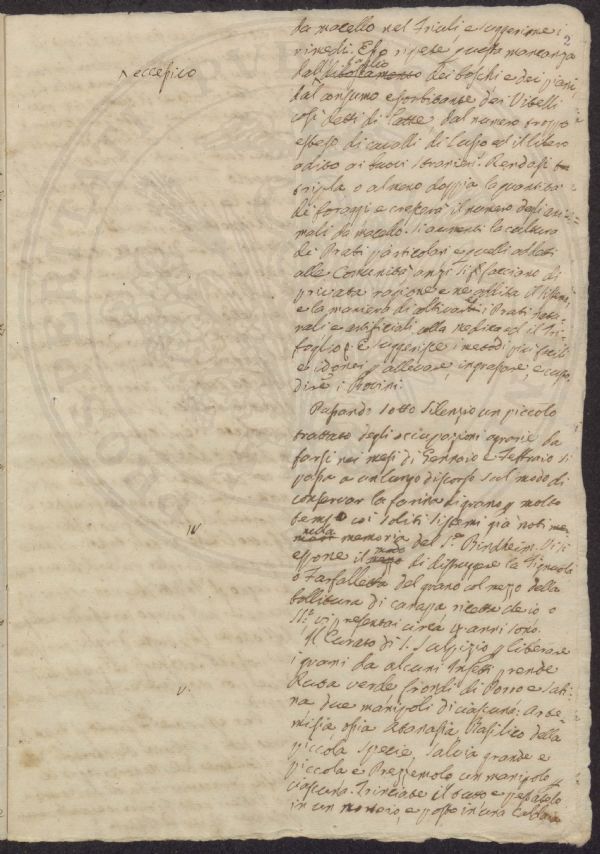 2
da macello nel Friuli e suggerisce i
rimedi. Esso ripete questa mancanza
eccessivo
dall' taglio dei boschi e dei piani
dal consumo esorbitante dei Vitelli
così detti di Latte, dal numero troppo
esteso di cavalli di Lusso ed il libero
adito ai buoi stranieri. Rendasi
tripla o almeno doppia la quantità
de foraggi e crescerà il numero degli ani-
mali da macello. Si aumenti la coltura
de Prati particolari e quelli addetti
alle Comunità anzi si facciano di
privata ragione e ne addita il sistema
e la maniera di coltivare i Prati natu-
rali e artificiali alla medica ed il Tri-
foglio. E suggerisce i metodi più facili
e idonei p allevare, ingrassare, e custo-
dire i Bovini.
Passando sotto silenzio un piccolo
trattato degli occupazioni agrarie da
farsi nei mesi di Gennaio e Febbraio si
passa a un lungo discorso sul modo di
conservar la farina di grano p molto
tempo coi soliti sistemi già noti
IV
nella memoria del S.r Bindheim. Vi si
espone il modo di distruggere la Tignuola
o Farfalletta del grano col mezzo della
bollitura di canapa ricetta che io
vi presentai circa anni sono.
V.
Il Curato di S. Sulpizio p liberare
i grani da alcuni Insetti prende
Ruta verde frondi di Porro e Sabi-
na due manipoli di ciascuno; Arte-
misia, ossia Atanasia, Basilico della
piccola specie, Salvia grande e
piccola e Prezzemolo un manipolo p
ciascuna. Trinciate il tutto e pestatelo
in un mortaio, e posto in una Caldaia